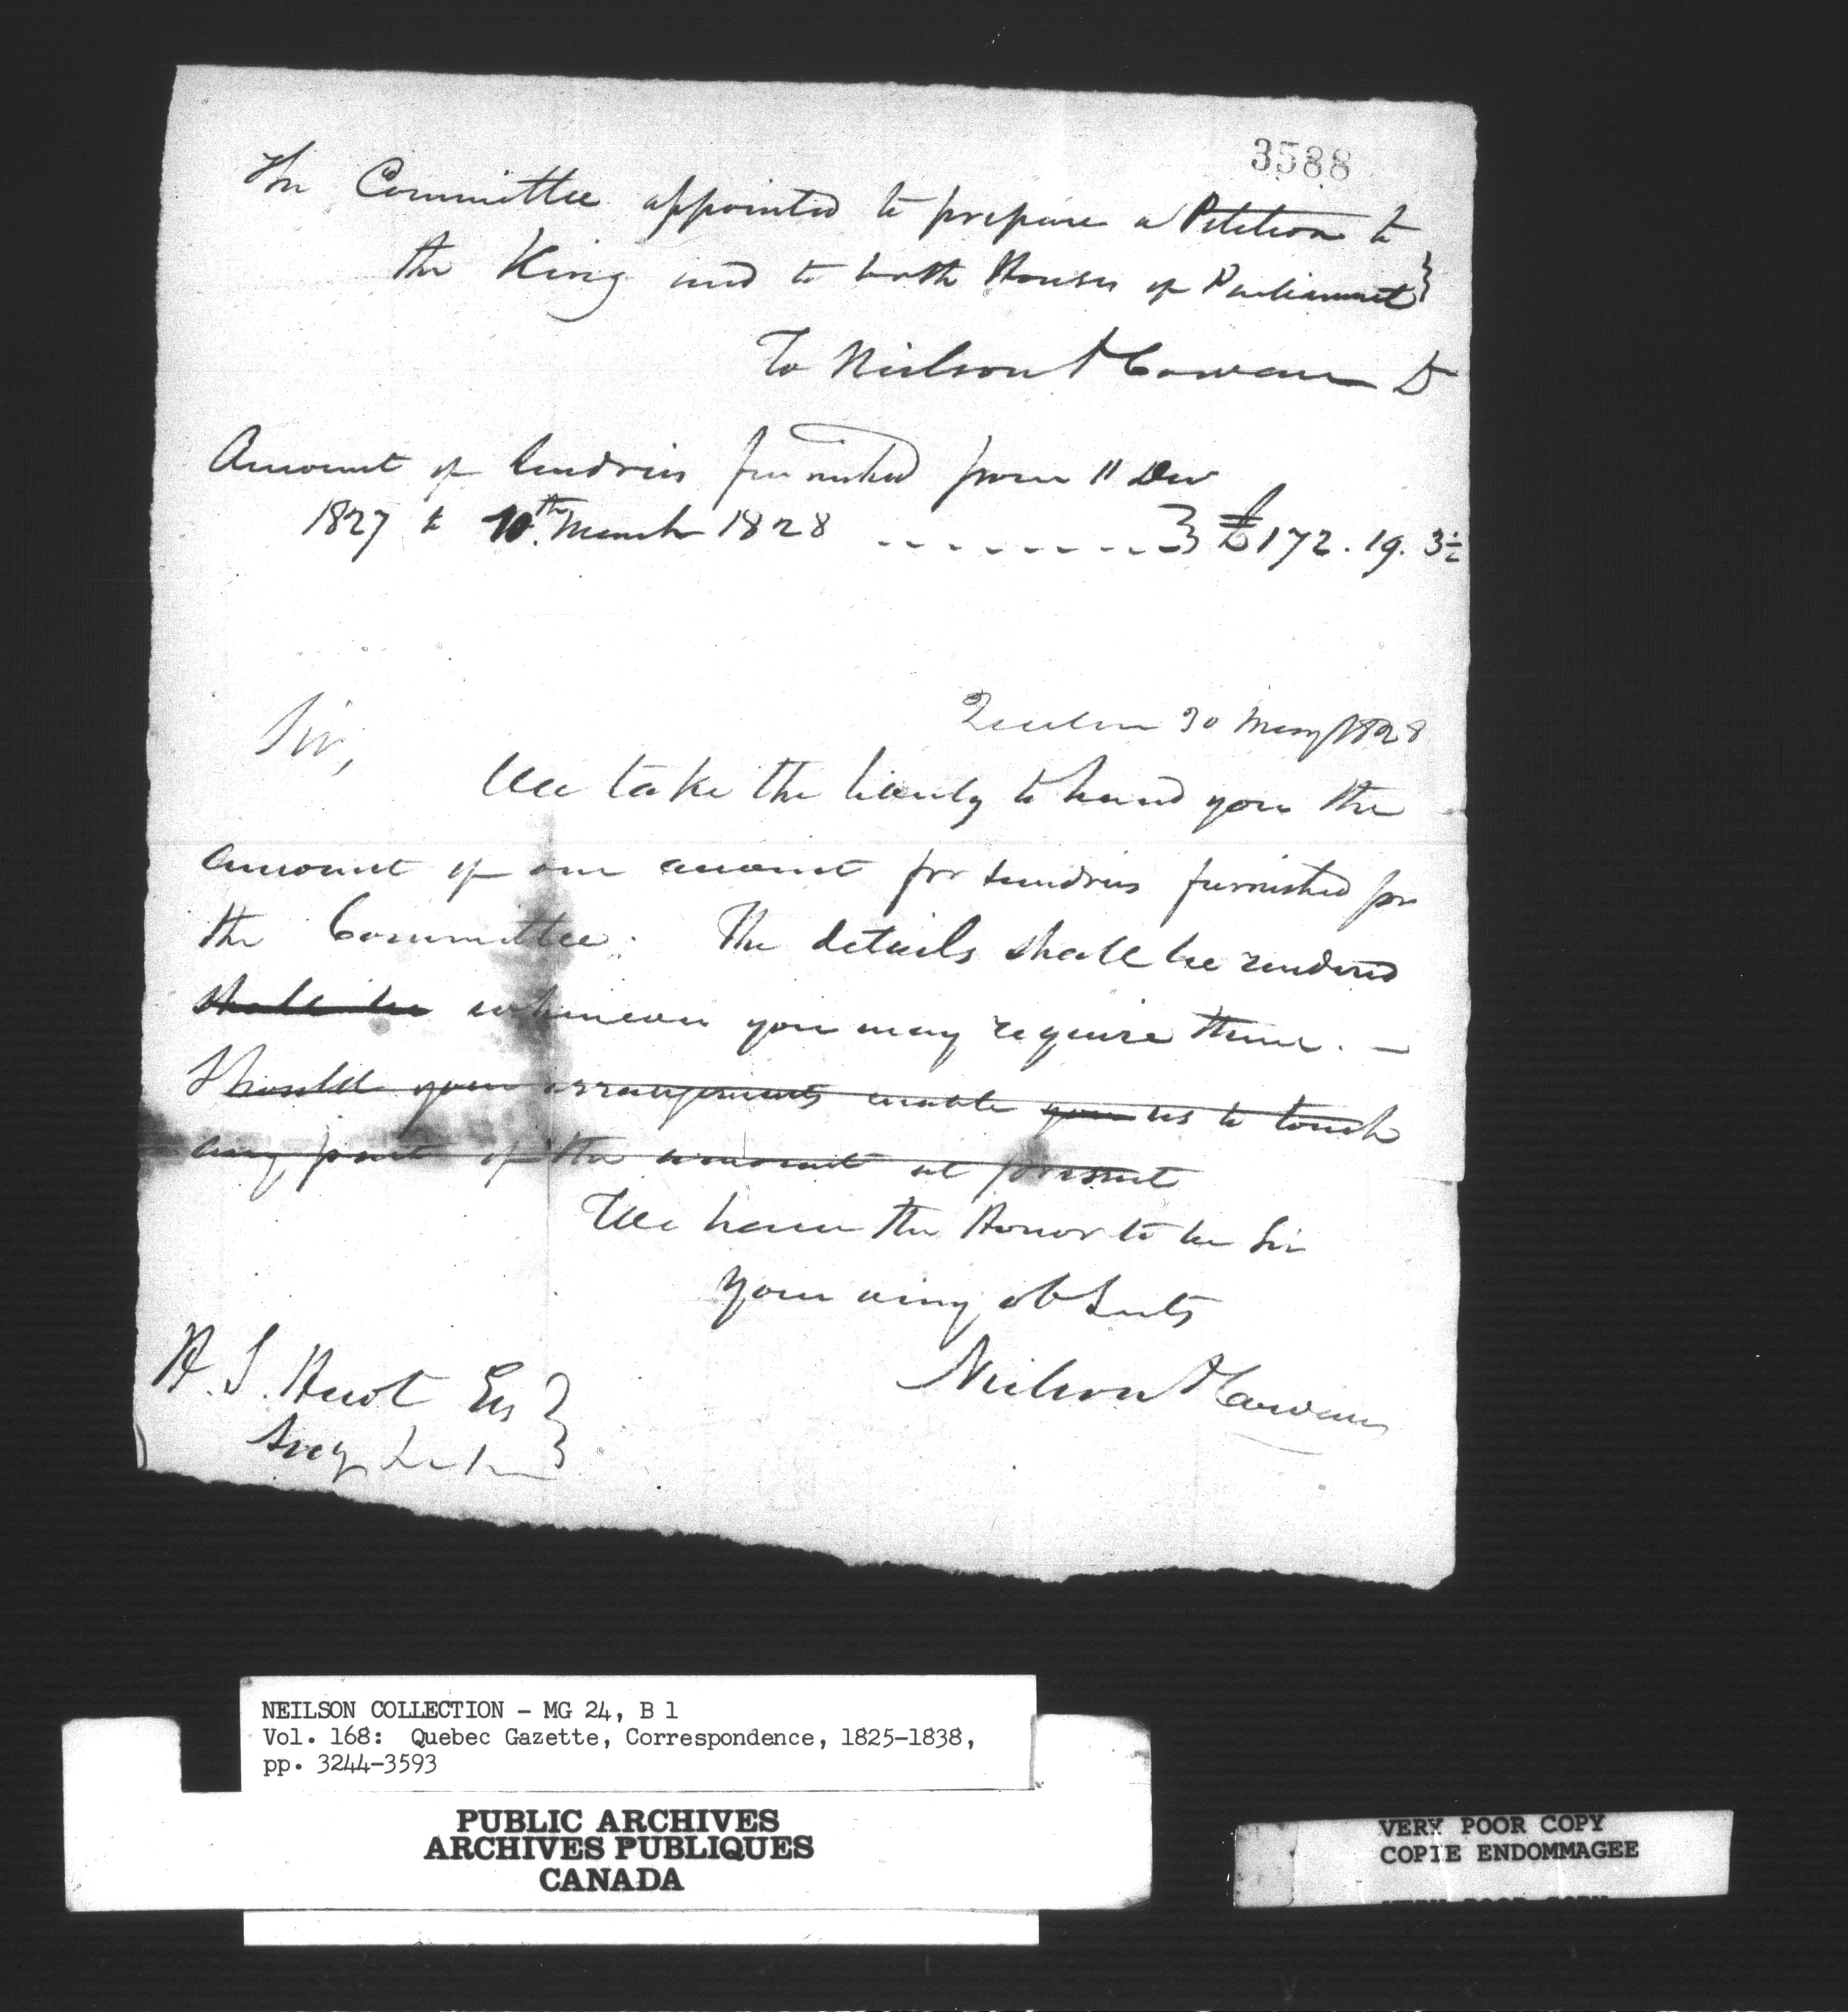 3588
The Committee appointed to prepare a Petition to
the King and to both Houses of Parliament }
To Neilson & Cowan Dr
Amount of Sundries furnished from 11 Dec
1827 to 10th March 1828 - - - - - - - - } £172. 19. 3½
Quebec 30 May 1828
Sir,
We take the liberty to hand you the
amount of our account for sundries furnished for
the Committee. The details shall be rendered
shall be whenever you may require them. —
Should your arrangements enable you us to touch
any part of the amount at present
We have the Honor to be Sir
Your very ob Servts
Neilson & Cowan
H. S. Huot Esq }
Secy
NEILSON COLLECTION - MG 24, B 1
Vol. 168: Quebec Gazette, Correspondence, 1825-1838,
pp. 3244-3593
PUBLIC ARCHIVES
ARCHIVES PUBLIQUES
CANADA
VERY POOR COPY
COPIE ENDOMMAGEE
VERY POOR COPY